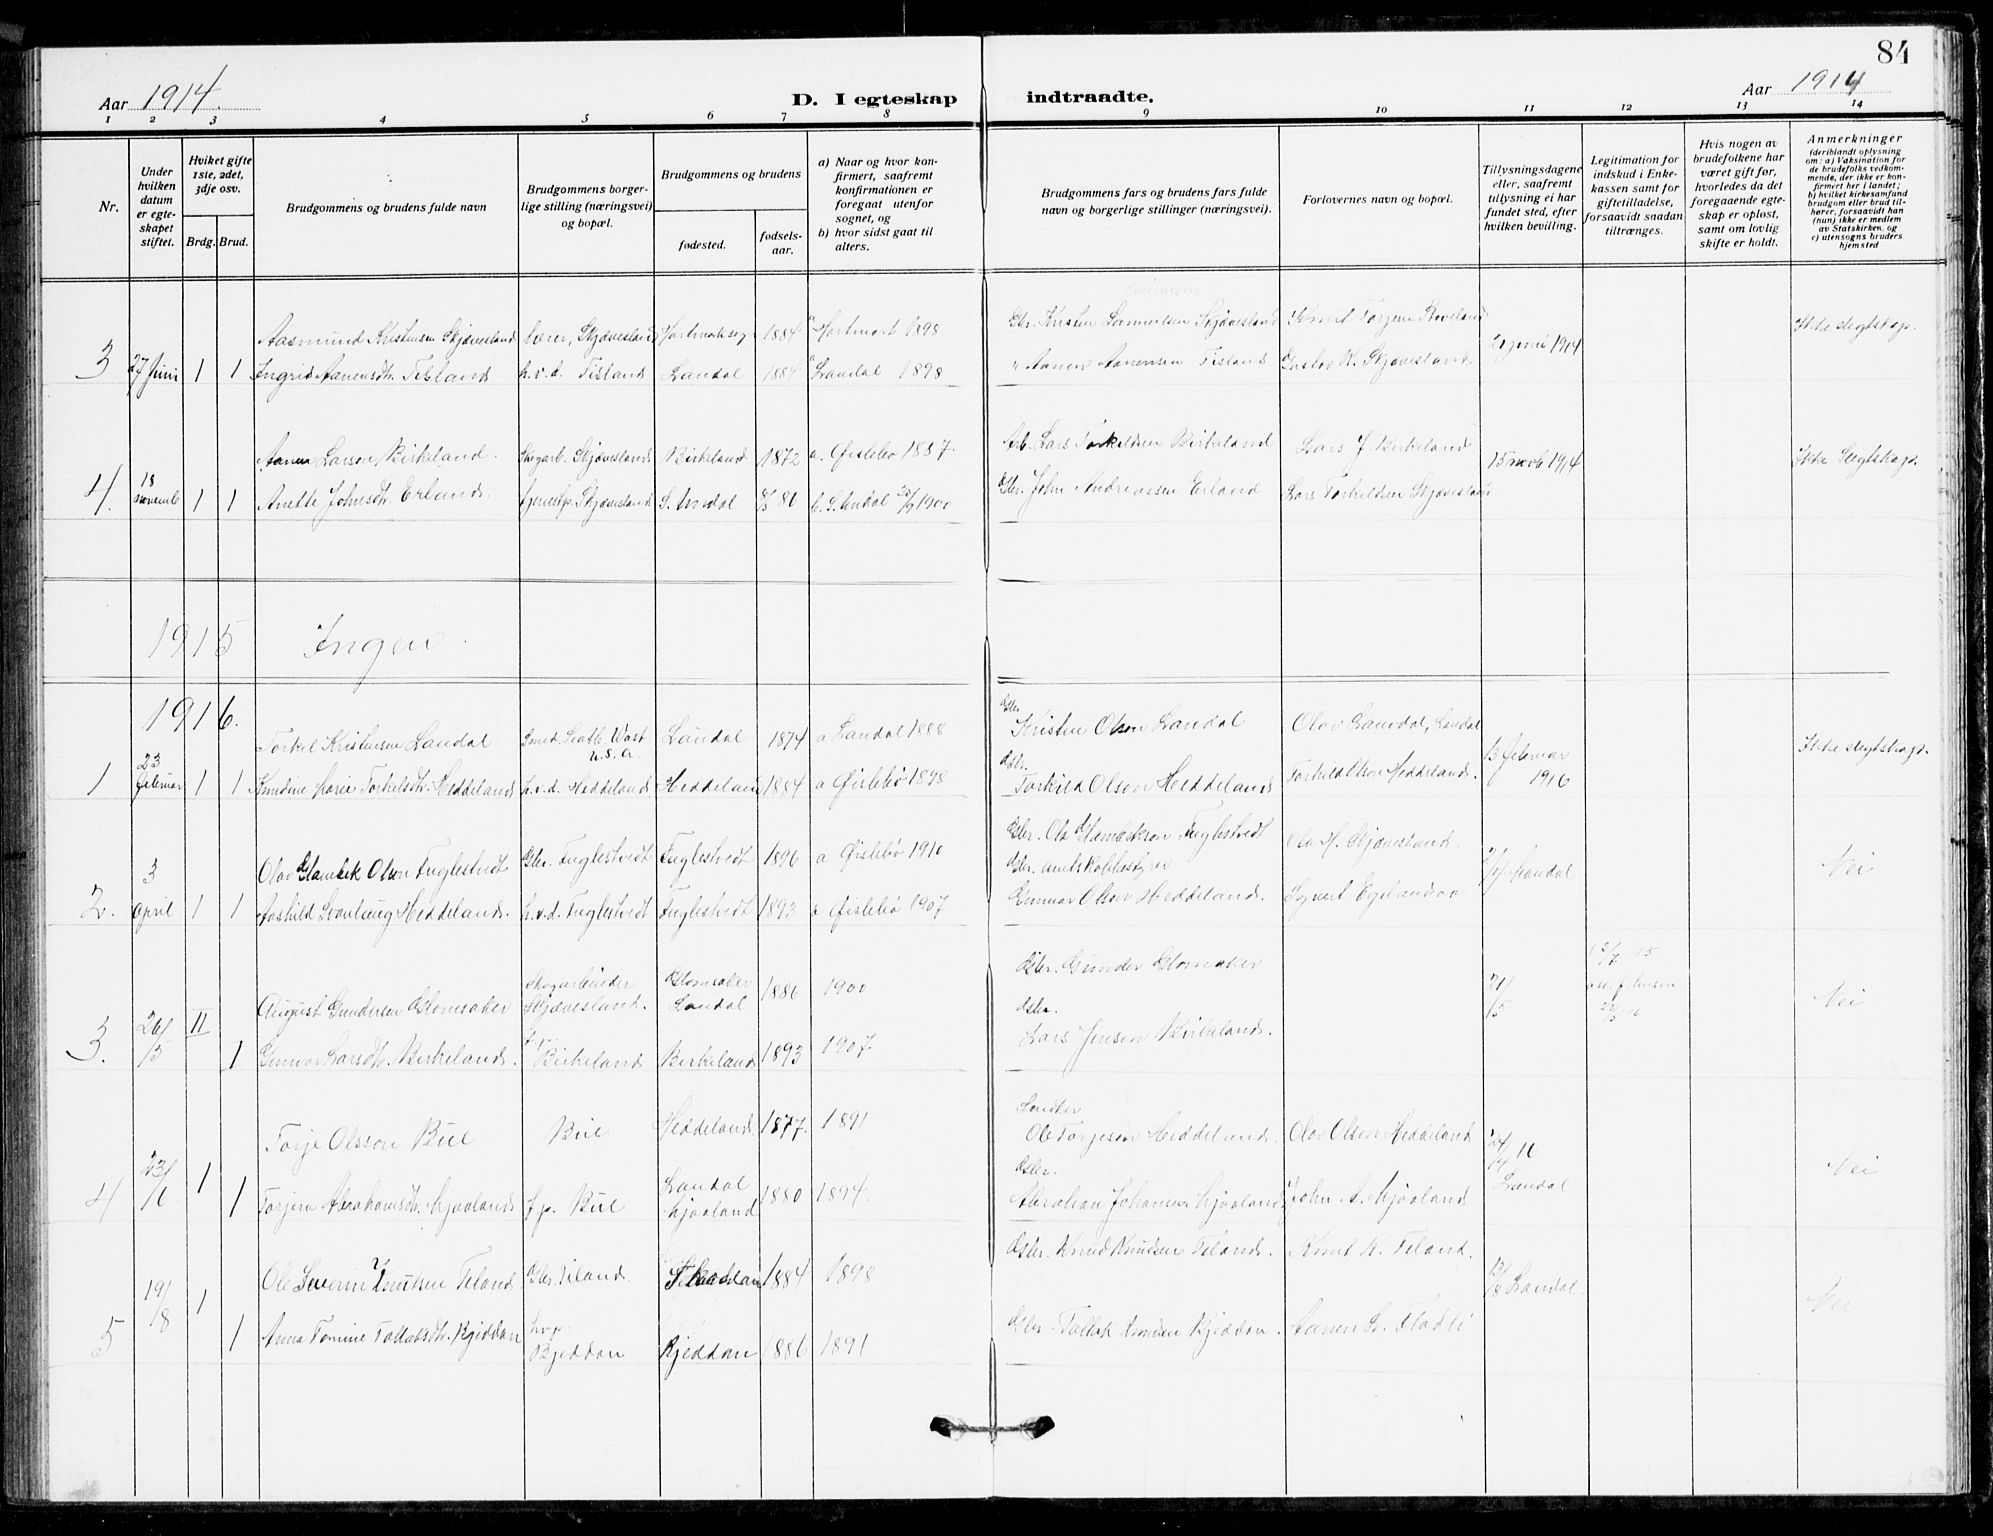 84
Aar 1914. D. I egteskap indtraadte. Aar 1914
1 2 3 4 5 6 7 8 9 10 11 12 13 14
Nr.
Under hvilken datum er egteskapet stiftet.
Hviket gifte 1ste, 2det, 3dje osv.
Brdg. Brud.
Brudgommens og brudens fulde navn
Brudgommens borgerlige stilling (næringsvei) og bopæl.
Brudgommens og brudens
fødested. fødselsaar.
a) Naar og hvor konfirmert, saafremt konfirmationen er foregaat utenfor sognet, og
b) hvor sidst gaat til alters.
Brudgommens fars og brudens fars fulde navn og borgerlige stillinger (næringsvei).
Forlovernes navn og bopæl.
Tillysningsdagene eller, saafremt tillysning ei har fundet sted, efter hvilken bevilling.
Legitimation for indskud i Enkekassen samt for giftetilladelse, forsaavidt saadan tiltrænges.
Hvis nogen av brudefolkene har været gift før, hvorledes da det foregaaende egteskap er opløst, samt om lovlig skifte er holdt.
Anmerkninger (deriblandt oplysning om: a) Vaksination for de brudefolks vedkommende, der ikke er konfirmert her i landet; b) hvilket kirkesamfund brudgom eller brud tilhører, forsaavidt han (hun) ikke er medlem av Statskirken, og c) utensogns bruders hjemsted
Aasmund Kristensen Skjævesland lærer, Skjævesland 1884 Hartmark 1898 Gbr. Kristen Samuelsen Skjævesland Stoveland Ikke slegtskap.
3 27 Juni 1 1 Ingrid Aanensdtr. Tisland h.v.d. Tisland Laudal 1884 Laudal 1898 " Aanen Aanensen Tisland Gustav K. Skjævesland juni 1914
Aanen Larson Birkeland. Skogarb. Skjævesland Birkeland 1872 a. Øislebø 1887. Arb. Lars Torkildsen Birkeland Lars J Birkeland Ikke Slegtskap.
4. 18 novemb 1 1 Anette Johnsdtr. Erland. tjenestp. Skjævesland S. Undal 86 b. S. Undal 1900 Gbr. John Andreassen Erland Lars Torkildsen Skjævesland 15 novb 1914
1915 Ingen.
1916.
Torkel Kristensen Laudal Smed. Seattle Wash U.S.A. Laudal 1874 a Laudal 1888 Gbr Kristen Olson Laudal Olav Laudal, Laudal Ikke slegtskap.
1 23 februar 1 1 Knudine Marie Torkelsdtr. Heddeland h.v.d. Heddeland Heddeland 1884 a Øislebø 1898 Gbr. Torkild Olson Heddeland Torkild Olson Heddeland. 13 februar 1916
Olav Glambek Olson Fuglestvedt Gbr. Fuglestvedt Fuglestvedt 1896 a Øislebø 1910 Gbr. Ola Glambekson Fuglestvedt Ola M. Skjævesland.
2. 3 april 1 1 Aashild Svanlaug Heddeland. h.v.d. Fuglestvedt Fuglestvedt 1893 a Øislebø 1907 Gbr. Gunnar Olson Heddeland. Sigvert Egelandsaa Nei
August Gundersen Glomsaker Skogarbeider Skjævesland. Glomsaker Laudal 1886 1900 Gbr. Gunder Glomsaker 21/5 Nei
3. 26/5 II 1 Gunvor Larsdtr. Birkeland. Birkeland Birkeland 1893 1907 Gbr. Lars Jensen Birkeland.
Torje Olsson Bue Bue Heddeland 1877. 1891 Ole Torjeson Heddeland. Olav Olson Heddeland Laudal Nei
4 23/6 1 1 Torjera Abrahamsdtr. Mjaaland f.p. Bue Laudal Mjaaland 1880 1894. Gbr. Abraham Johansen Mjaaland John A. Mjaaland
Ole Severin Knutsen Teland Gbr. Teland. 1884 1898 Gbr. Knud Knudsen Teland. Knut K. Teland.
5 19/8 1 1 Anna Tomine Tallaksdtr. Bjeddan Bjeddan. Bjeddan 1886 1891 Gbr. Tallak Knudsen Bjeddan. Aanen L. Fladli Laudal. Nei